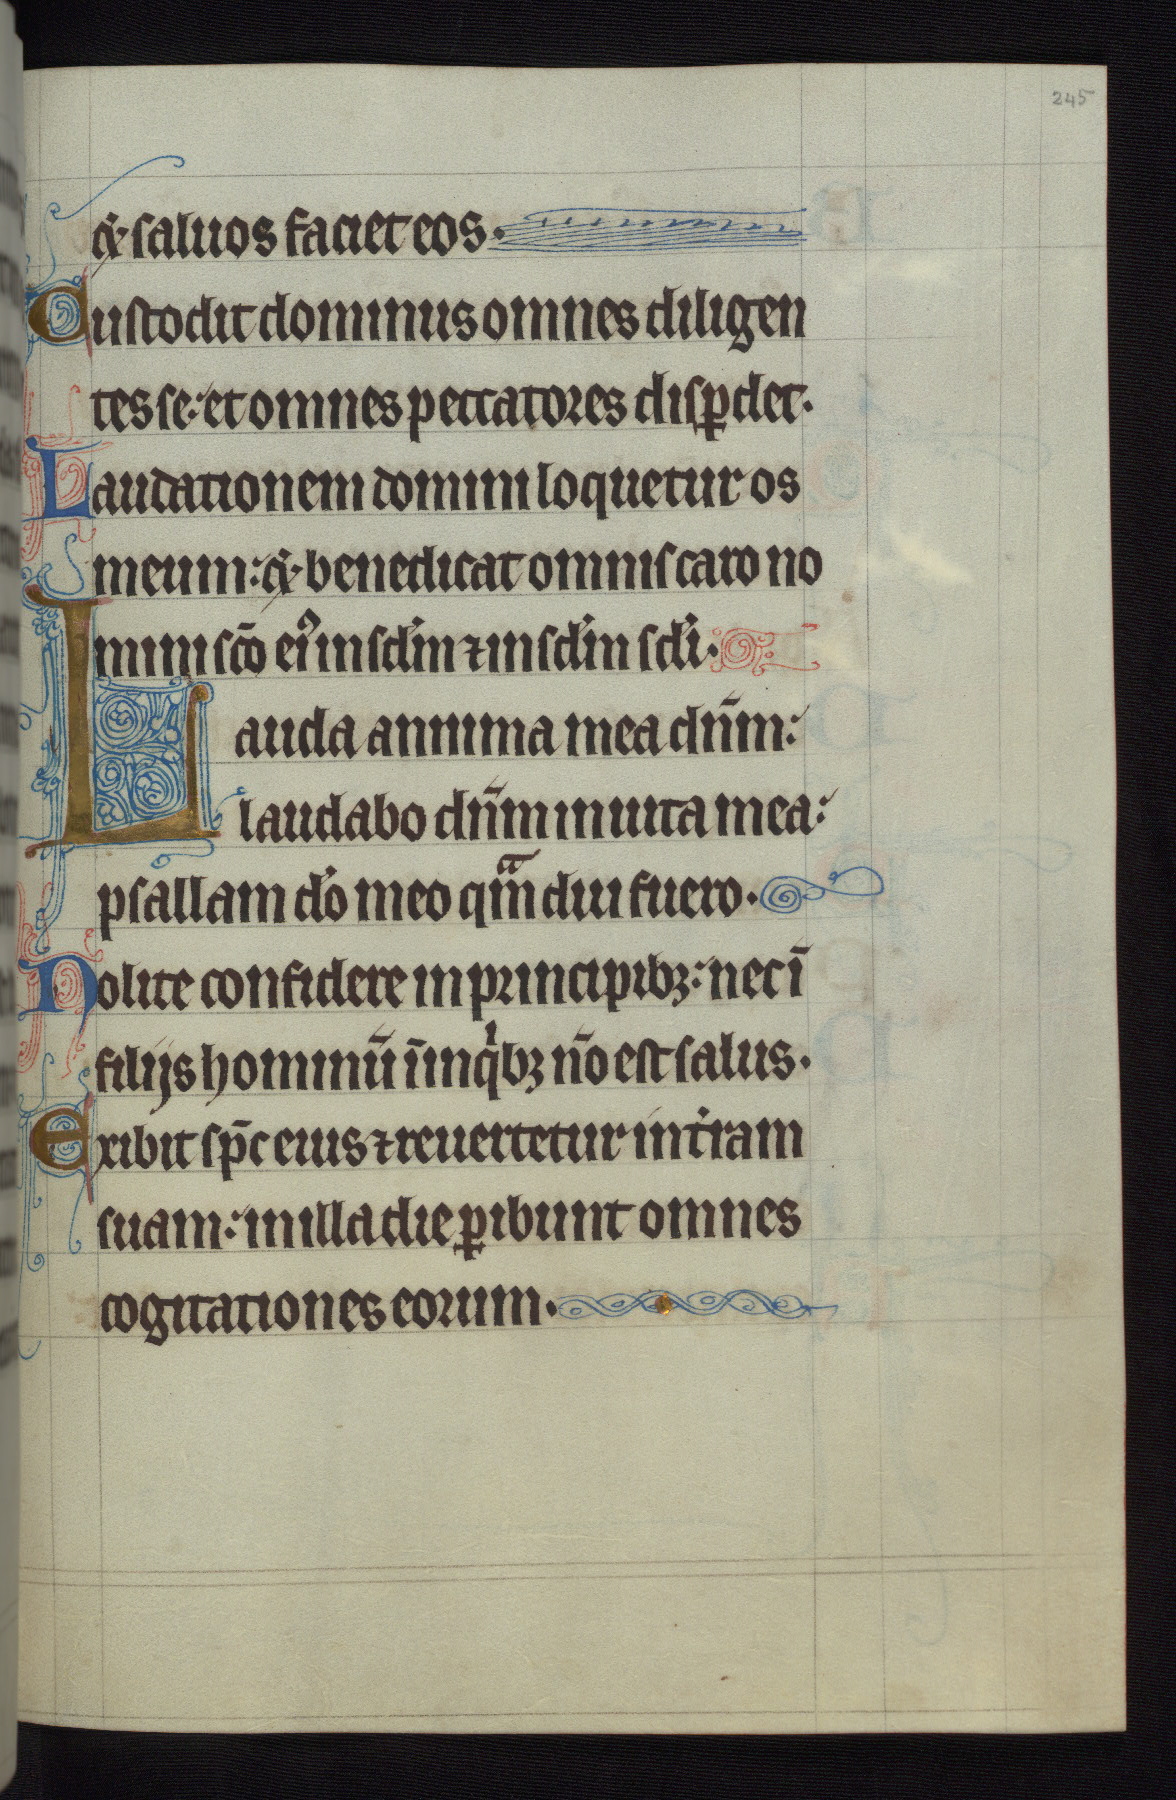 245
⁊ saluos faciet eos.
Custodit dominus omnes diligen
tes se: et omnes peccatores disꝑdet.
Laudationem domini loquetur os
meum: ⁊ benedicat omnis caro no
mini sc̄o eiꝰ in sc̄lm ⁊ in sc̄lm sc̄li.
Lauda annima mea dn̄m:
laudabo dn̄m in uita mea:
psallam dō meo qᵃm̄diu fuero.
Nolite confidere in principibꝫ: nec ī
filijs hominū ī in qⁱbꝫ nō est salus.
Exibit sp̄c eius ⁊ reuertetur in tⁱram
suam: in illa die ꝑibunt omnes
cogitationes eorum.